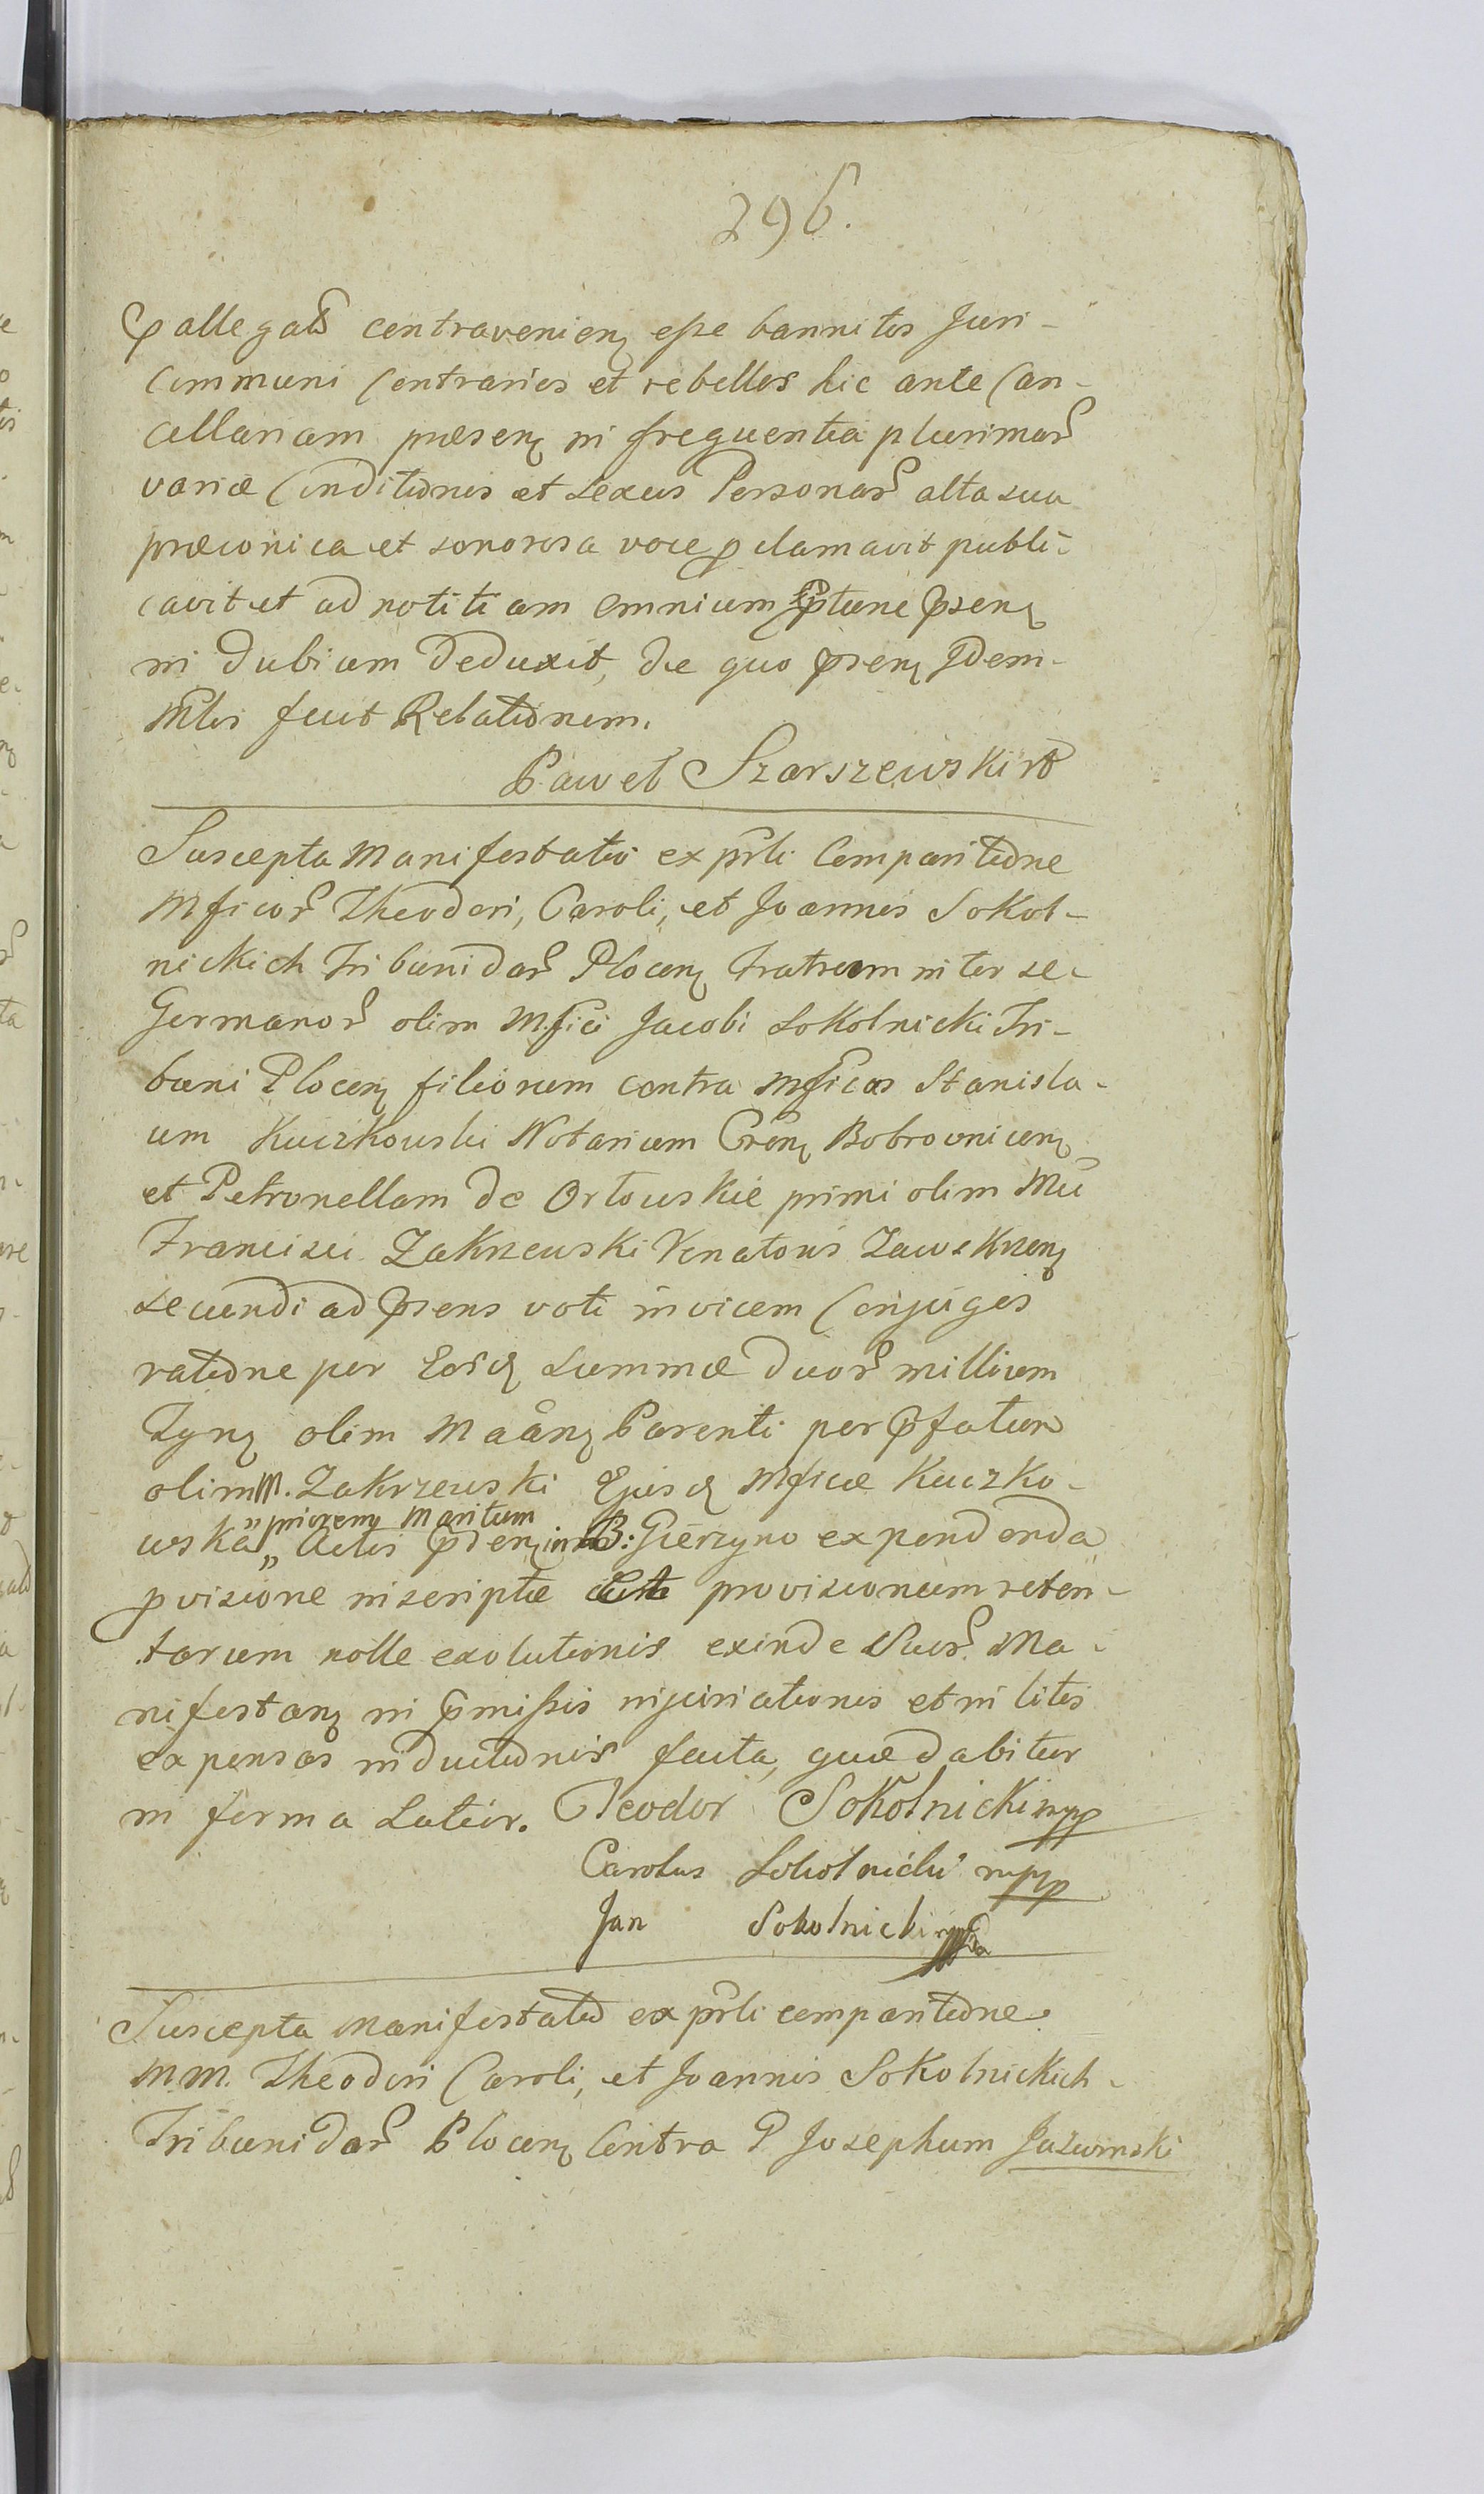 296.
p allegatis contravenien esse bannitos Juri-
communi Contrarios et rebelles hic ante Can-
cellariam præsen in frequentia plurimar
variæ Conditionis et sexus Personar alta sua
præconica et sonorosa voce pclamavit publi-
cavit et ad notitiam omnium ptune psen
in dubium deduxit, de quo psen Idem-
Mtlis fecit Relationem.
Paweł Szarszewski
Suscepta Manifestatio ex psli Comparitione
Mficor Theodori, Caroli, et Joannis Sokol-
nickich Tribunidar Plocen fratrum inter se-
Germanor olim Mfici Jacobi Sokolnicki Tri-
buni Plocen filiorum contra Mficos Stanisla-
um Kuczkowski Notarium Cren Bobrownicen
et Petronellam de Orłowskie primi olim Mci
Francisci Zakrzewski Venatoris Zawskrzen
secundi ad psens voti invicem Conjuges
ratione per Eosd summæ duor millium
Tyn olim Maan Parenti per pfatum
olim M. Zakrzewski Ejusd Mficæ Kuczko-
" priorem Maritum
wska „ Actis pden in B: Gierzyno expendenda
pvisione inscriptæ provisionum reten-
tarum nolle exolutionis exinde Suor Ma-
nifestan in pmissis injuriationis et in litis
expensas inductionis facta, quæ dabitur
in forma Latior. Teodor Sokolnicki mpp
Carolus Sokolnicki mpp
Jan Sokolnicki mpp
Suscepta Manifestatio ex psli comparitione
M.M. Theodori Caroli, et Joannis Sokolnickich-
Tribunidar Plocen Contra P Josephum Jazwinski